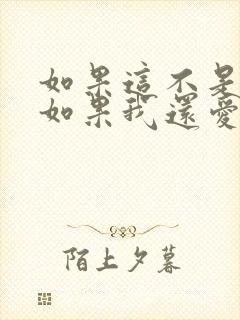 如果這不是
如果我還愛
陌上夕暮